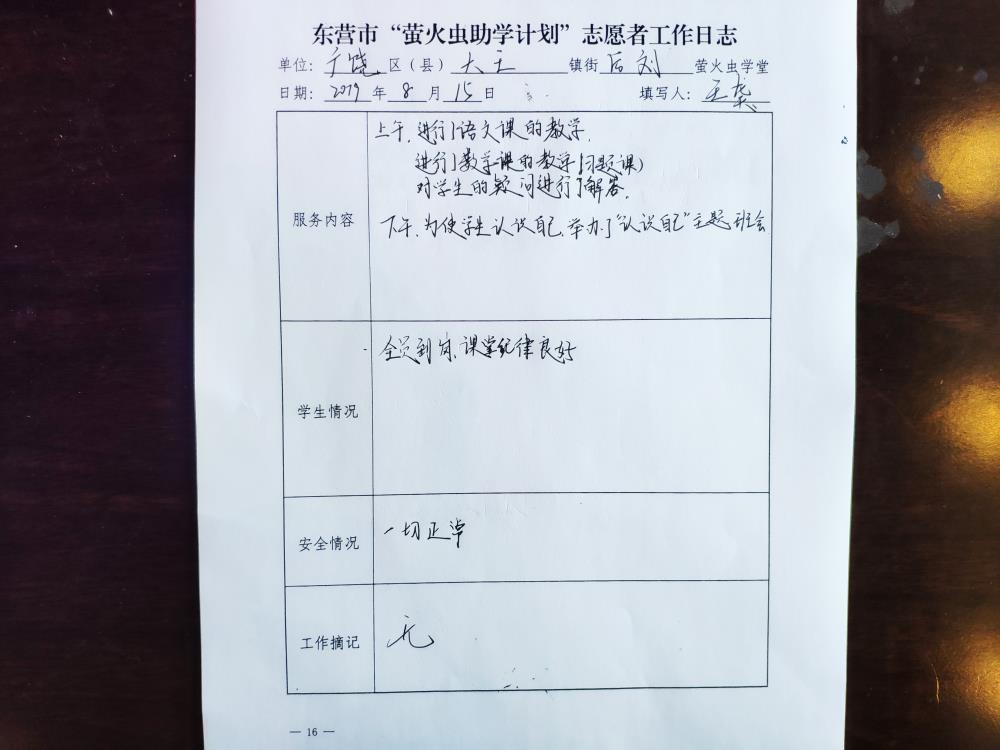 东营市“萤火虫助学计划”志愿者工作日志
单位：广饶区（县）大王镇街后刘萤火虫学堂
日期：2019年8月15日 填写人：王龚
服务内容
上午，进行了语文课的教学，
进行了数学课的教学（习题课）
对学生的疑问进行了解答。
下午，为使学生认识自己，举办了“认识自己”主题班会
学生情况
全员到岗，课堂纪律良好
安全情况
一切正常
工作摘记
无
— 16 —